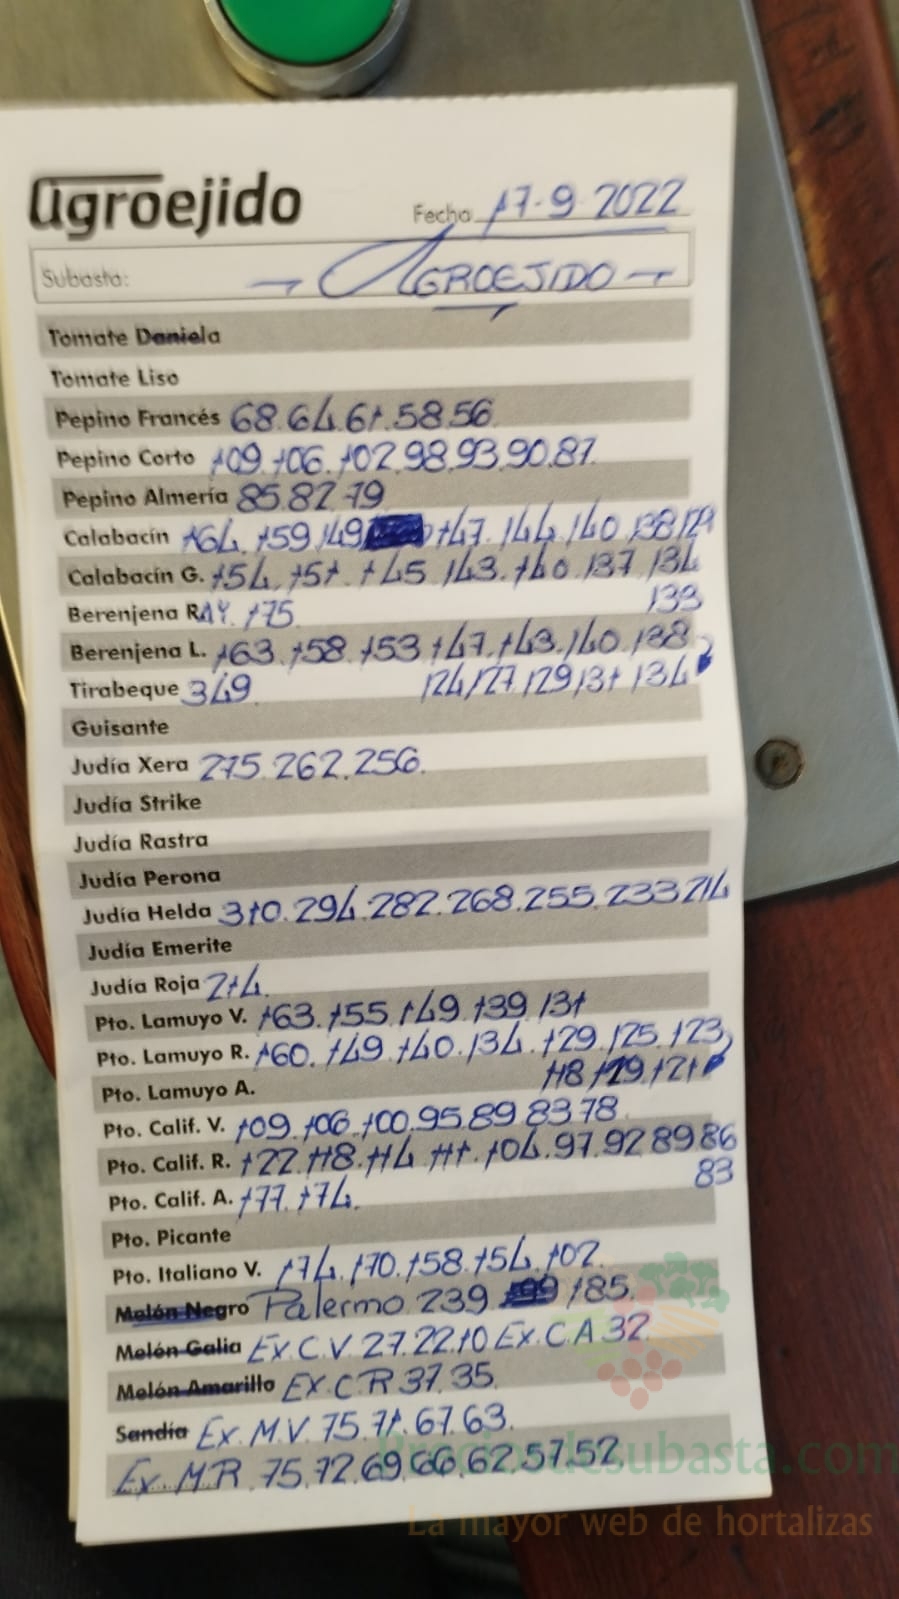 agroejido
Fecha 17-9 2022
Subasta: → AGROEJIDO →
Tomate Daniela
Tomate Liso
Pepino Francés 68.64.61.58.56
Pepino Corto 109.106.102.98.93.90.87.
Pepino Almería 85.82.79
Calabacín 164.159.149 147.144.140.138.129
Calabacín G. 154.151.145.143.140.137.134
133
Berenjena RAY. 175.
Berenjena L. 163.158.153.147.143.140.138
124/127.129.131.134
Tirabeque 349
Guisante
Judía Xera 275.262.256.
Judía Strike
Judía Rastra
Judía Perona
Judía Helda 310.294.282.268.255.233.214
Judía Emerite
Judía Roja 214.
Pto. Lamuyo V. 163.155.149.139.131
Pto. Lamuyo R. 160.149.140.134.129.125.123
118.119.121
Pto. Lamuyo A.
Pto. Calif. V. 109.106.100.95.89.83.78
Pto. Calif. R. 122.118.114.111.104.97.92.89.86
83
Pto. Calif. A. 177.174.
Pto. Picante
Pto. Italiano V. 174.170.158.154.102
Melón Negro Palermo 239 199 185.
Melón Galia Ex.C.V. 27.22.10 Ex.C.A 32.
Melón Amarillo EX.C.R 37.35.
Sandía Ex.M.V. 75.71.67.63.
Ex.M.R. 75.72.69.66.62.57.52.
Preciosdesubasta.com
La mayor web de hortalizas